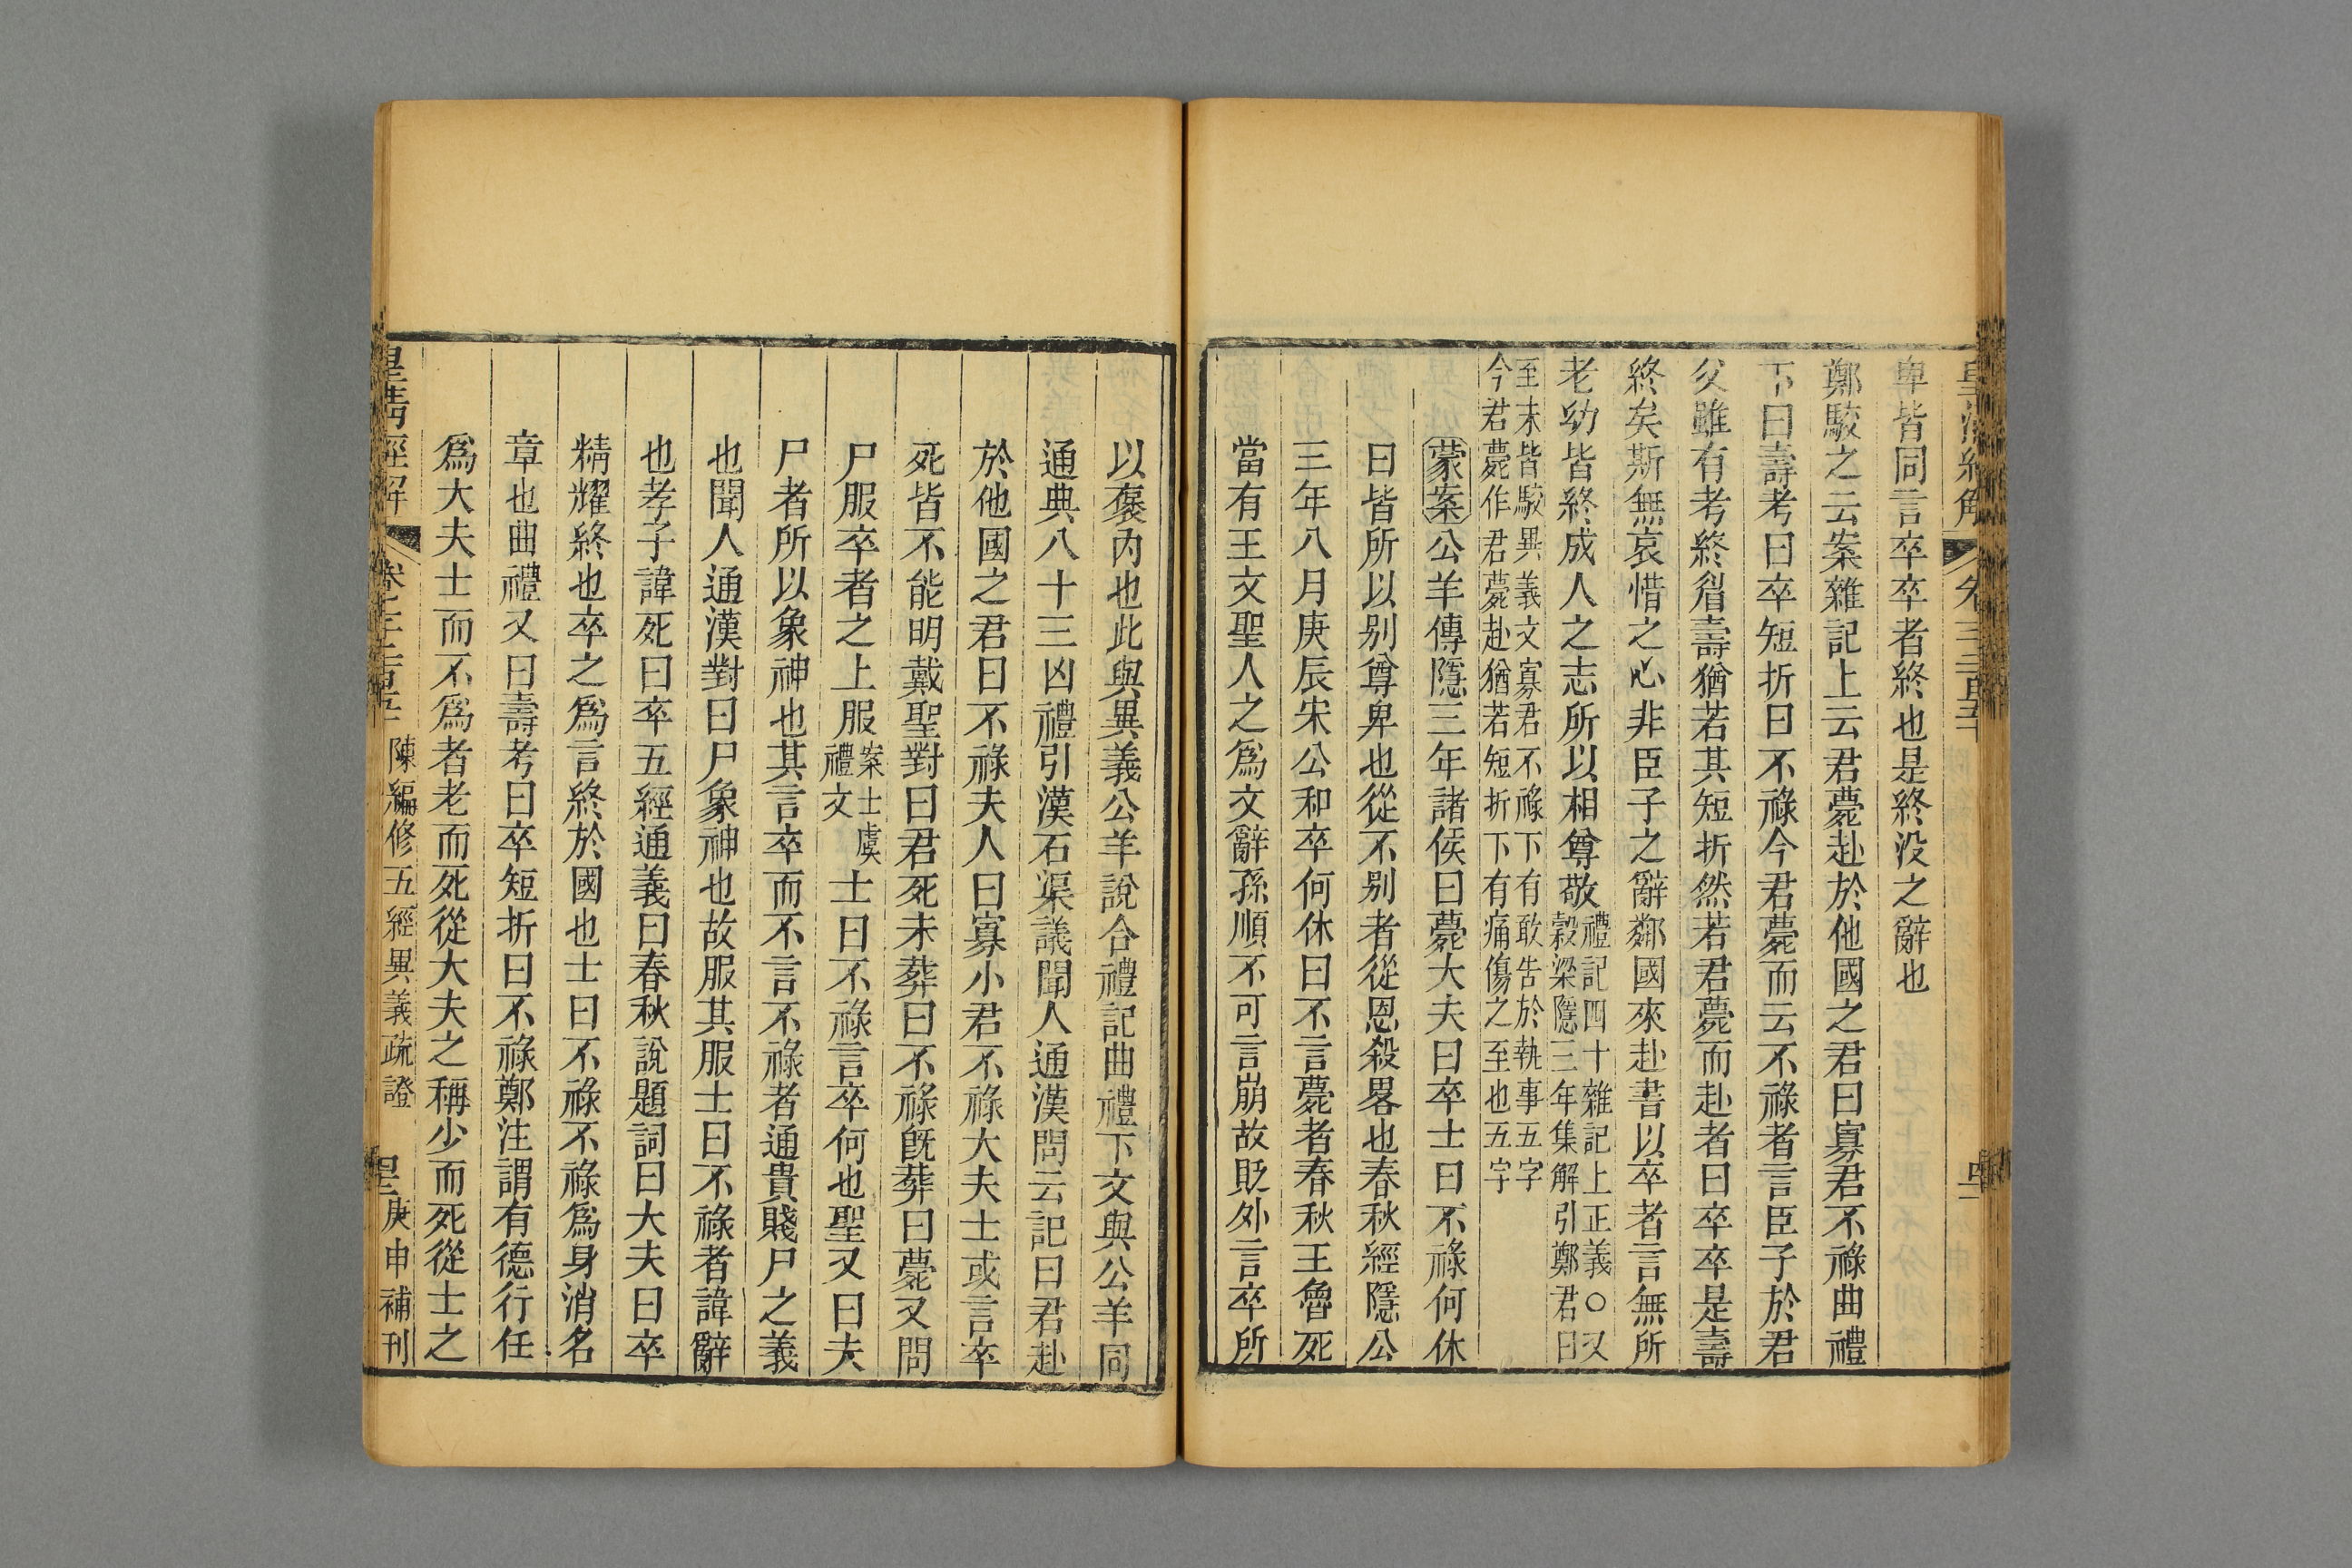 卑皆同言卒卒者終也是終没之辭也
鄭駮之云案雜記上云君薨赴於他國之君曰寡君不祿曲禮
下曰壽考曰卒短折曰不祿今君薨而云不祿者言臣子於君
父雖有考終眉壽猶若其短折然若君薨而赴者曰卒卒是壽
終矣斯無哀惜之心非臣子之辭鄰國來赴書以卒者言無所
老幼皆終成人之志所以相尊敬
禮記四十雜記上正義○又
穀梁隱三年集解引鄭君曰
至末皆駮異義文寡君不祿下有敢告於執事五字
今君薨作君薨赴猶若短折下有痛傷之至也五字
蒙案公羊傳隱三年諸侯曰薨大夫曰卒士曰不祿何休
曰皆所以别尊卑也從不别者從恩殺畧也春秋經隱公
三年八月庚辰宋公和卒何休曰不言薨者春秋王魯死
當有王文聖人之爲文辭孫順不可言崩故貶外言卒所
以褒内也此與異義公羊說合禮記曲禮下文與公羊同
通典八十三凶禮引漢石渠議聞人通漢問云記曰君赴
於他國之君曰不祿夫人曰寡小君不祿大夫士或言卒
死皆不能明戴聖對曰君死未葬曰不祿旣葬曰薨又問
尸服卒者之上服
案士虞
禮文
士曰不祿言卒何也聖又曰夫
尸者所以象神也其言卒而不言不祿者通貴賤尸之義
也聞人通漢對曰尸象神也故服其服士曰不祿者諱辭
也孝子諱死曰卒五經通義曰春秋說題詞曰大夫曰卒
精耀終也卒之爲言終於國也士曰不祿不祿爲身消名
章也曲禮又曰壽考曰卒短折曰不祿鄭注謂有德行任
爲大夫士而不爲者老而死從大夫之稱少而死從士之
皇淸經解
陳編修五經異義疏證
庚申補刊